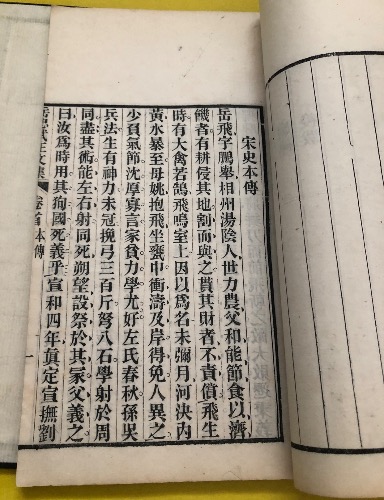 宋史本傳
岳飛字鵬舉相州湯陰人世力農父和能節食以濟
饑者有耕侵其地割而與之貰其財者不責償飛生
時有大禽若鵠飛鳴室上因以爲名未彌月河決內
黃水暴至母姚抱飛坐甕中衝濤及岸得免人異之
少負氣節沈厚寡言家貧力學尤好左氏春秋孫吳
兵法生有神力未冠挽弓三百斤弩八石學射於周
同盡其術能左右射同死朔望設祭於其家父義之
曰汝爲時用其狥國死義乎宣和四年眞定宣撫劉
岳忠武王文集 卷首 本傳 一